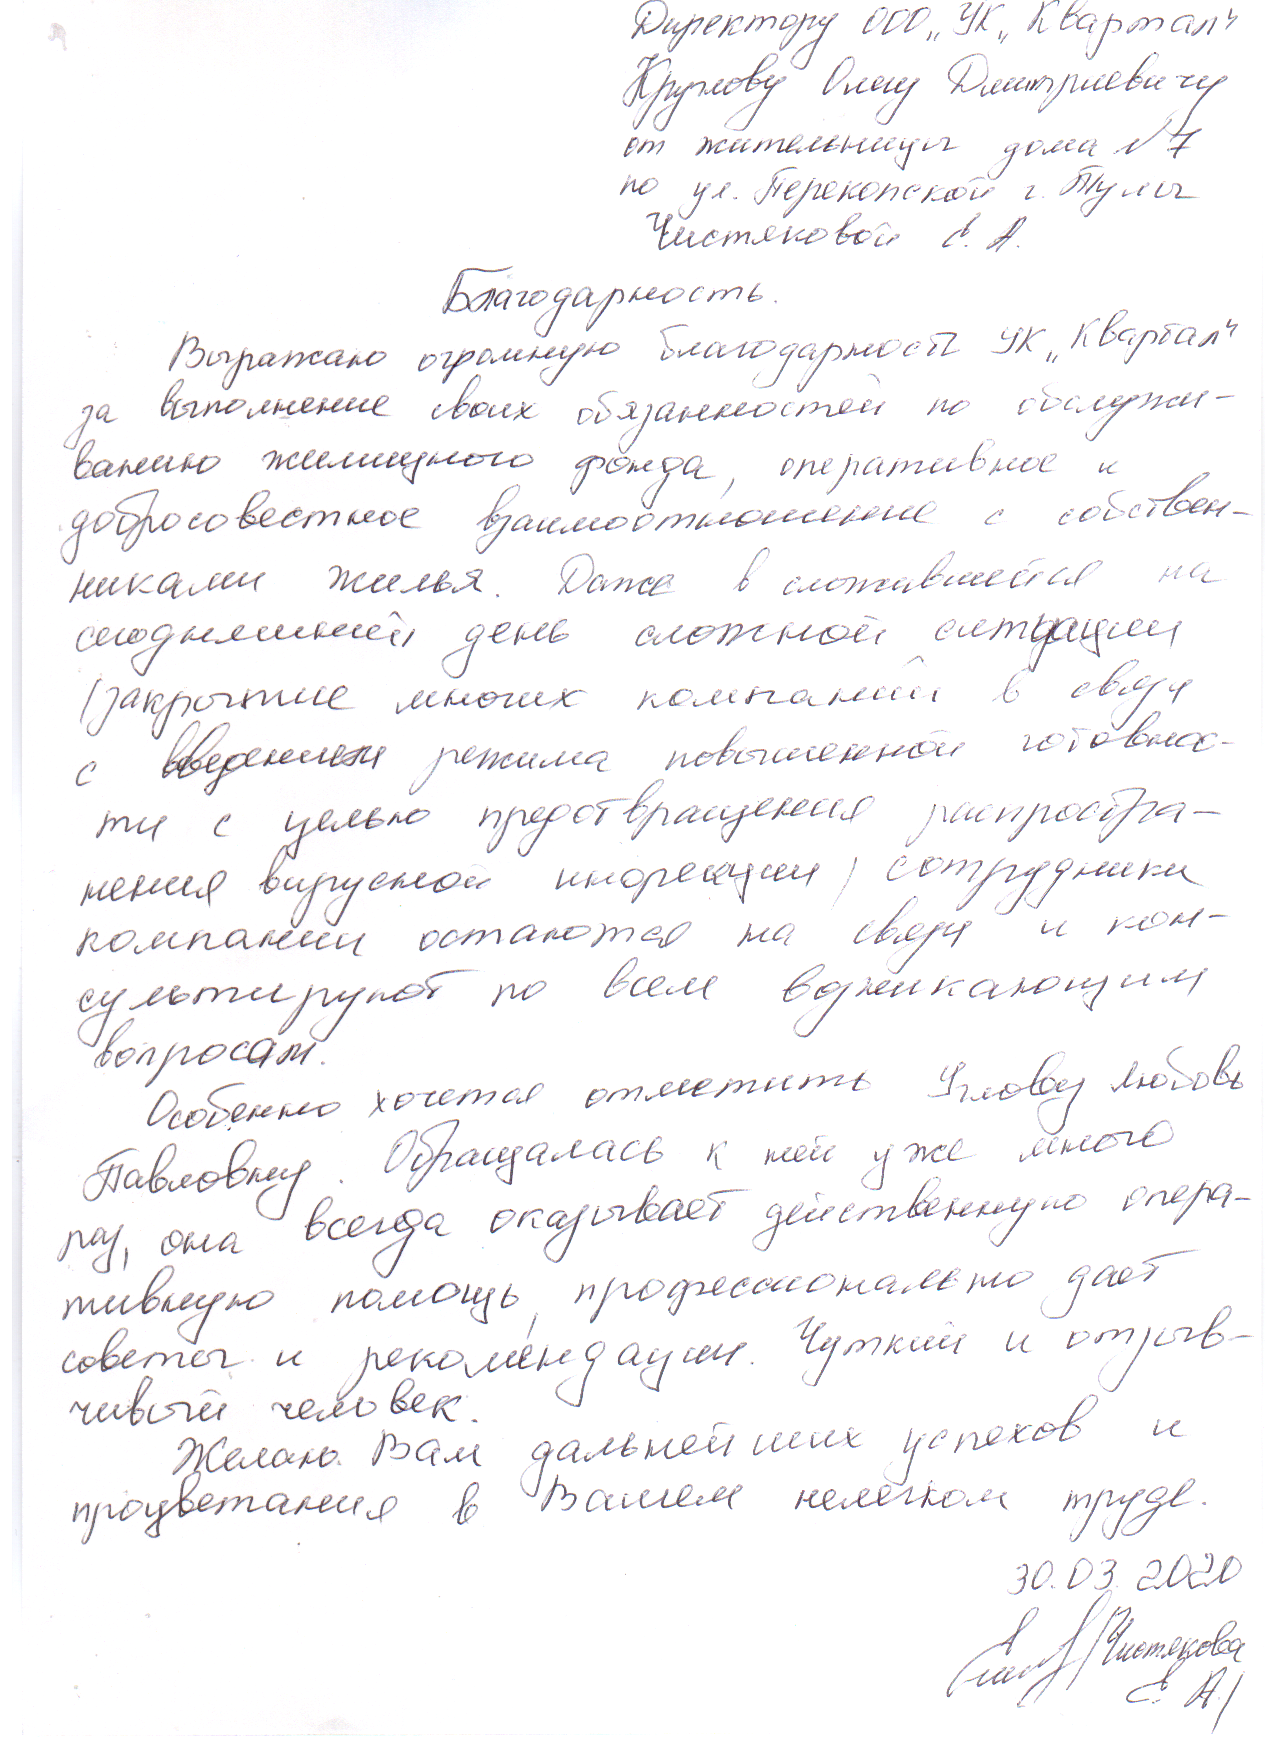 Директору ООО „УК „Квартал"
Круглову Олегу Дмитриевичу
от жительницы дома №7
по ул. Перекопской г. Тулы
Чистяковой Е. А.
Благодарность.
Выражаю огромную благодарность УК „Квартал"
за выполнение своих обязанностей по обслужи-
ванию жилищного фонда, оперативное и
добросовестное взаимоотношение с собствен-
никами жилья. Даже в сложившейся на
сегодняшний день сложной ситуации
/закрытие многих компаний в связи
с введением режима повышенной готовнос-
ти с целью предотвращения распростра-
нения вирусной инфекции/ сотрудники
компании остаются на связи и кон-
сультируют по всем возникающим
вопросам.
Особенно хочется отметить Углову Любовь
Павловну. Обращалась к ней уже много
раз, она всегда оказывает действенную опера-
тивную помощь, профессионально дает
советы и рекомендации. Чуткий и отзыв-
чивый человек.
Желаю Вам дальнейших успехов и
процветания в Вашем нелегком труде.
30.03.2020
/Чистякова
Е. А./